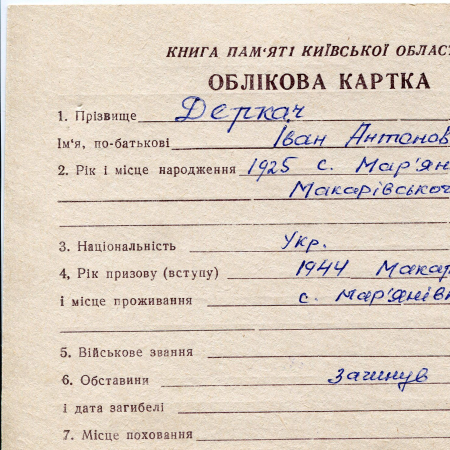 КНИГА ПАМ'ЯТІ КИЇВСЬКОЇ ОБЛАСТ
ОБЛІКОВА КАРТКА
1. Прізвище Деркач
Ім'я, по-батькові Іван Антонов
2. Рік і місце народження 1925 с. Мар'ян
Макарівської
3. Національність Укр.
4, Рік призову (вступу) 1944 Макар
і місце проживання с. Мар'янівк
5. Військове звання
6. Обставини загинув
і дата загибелі
7. Місце поховання